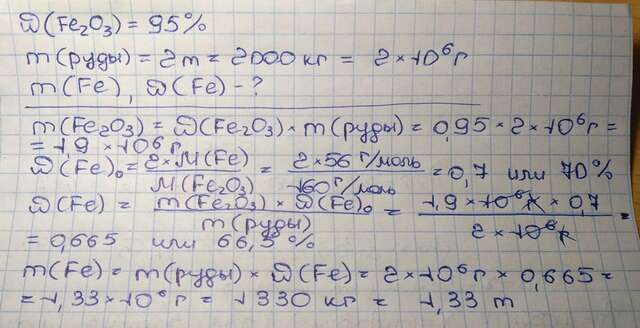 ω(Fe₂O₃) = 95%
m(руды) = 2т = 2000 кг = 2×10⁶г
m(Fe), ω(Fe) - ?
m(Fe₂O₃) = ω(Fe₂O₃) × m(руды) = 0,95 × 2 × 10⁶г =
= 1,9 × 10⁶ г
ω(Fe)₀ = 2×M(Fe) / M(Fe₂O₃) = 2×56 г/моль / 160 г/моль = 0,7 или 70%
ω(Fe) = m(Fe₂O₃) × ω(Fe)₀ / m(руды) = 1,9 × 10⁶г × 0,7 / 2 × 10⁶г =
= 0,665 или 66,5 %
m(Fe) = m(руды) × ω(Fe) = 2×10⁶ г × 0,665 =
= 1,33×10⁶ г = 1330 кг = 1,33 т